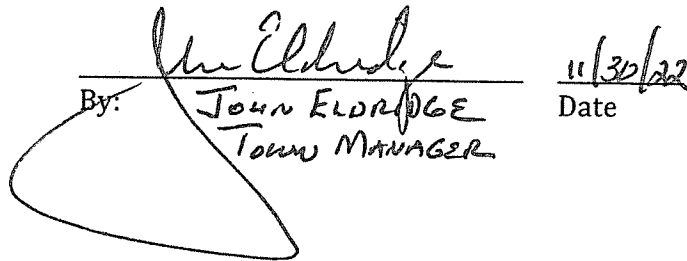 John Eldridge 11/30/22
By: JOHN ELDRIDGE Date
TOWN MANAGER